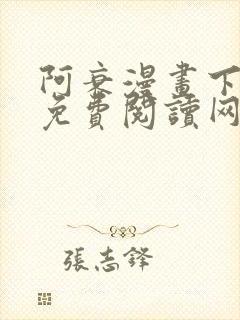 阿衰漫畫下
免費閱讀网
張志鋒